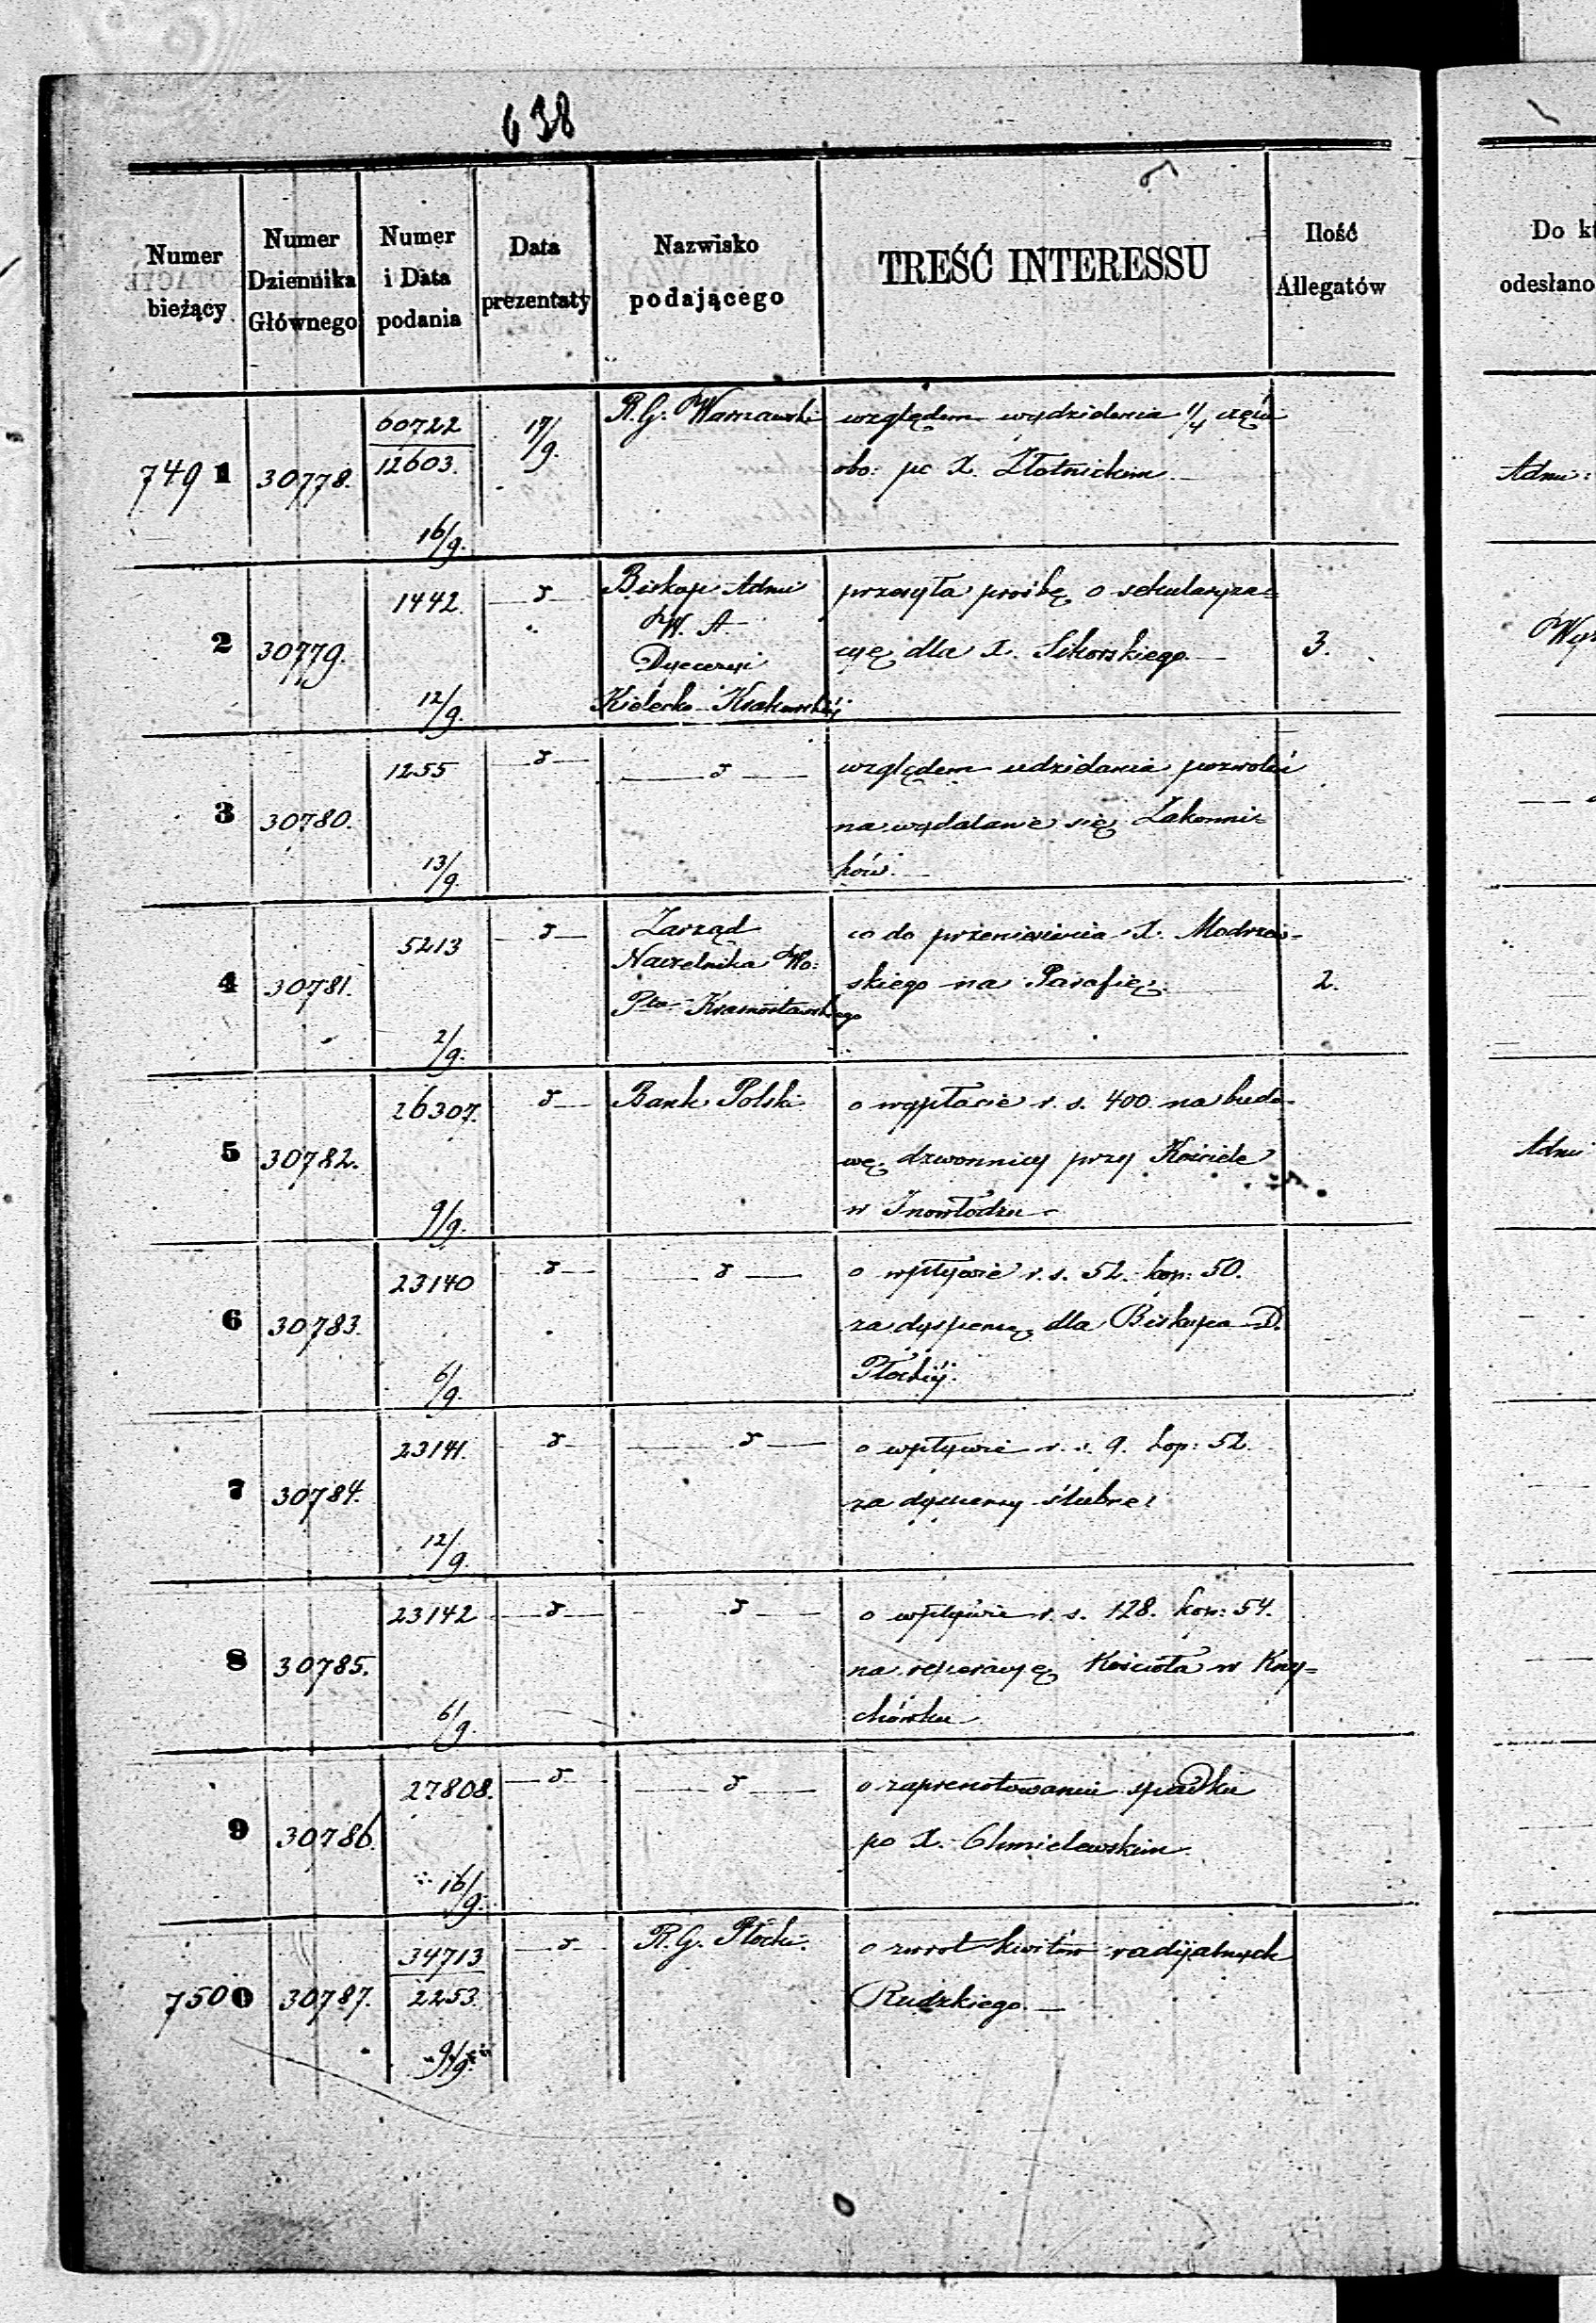 638
Numer bieżący
Numer Dziennika Głównego
Numer i Data podania
Data prezentaty
Nazwisko podającego
TREŚĆ INTERESSU
Ilość Allegatów
Do kt
odesłano
7491 30778. 60722 17/9. R. G. Warszawski względem wydzielenia 1/4 części
12603. obo: po X. Złotnickim.
16/9.
Adm:
2 30779. 1442. d Biskup Adm przesyła prośbę o sekularyza=
W. A. cyę dla X. Sikorskiego. 3.
Dyecezyi
12/9. Kielecko-Krakowskiéj
3 30780. 1255 d d względem udzielania pozwoleń
na wydalanie się Zakonni=
13/9. ków.
4 30781. 5213 d Zarząd co do przeniesienia X. Modrzew-
Naczelnika Wo: skiego na Parafię. 2.
Ptu Krasnostawskiego
2/9.
5 30782. 26307. d Bank Polski o wypłacie r. s. 400 na budo-
wę dzwonnicy przy Kościele
9/9. w Inowłodzu
Adm
6 30783. 23140 d d o wpływie r. s. 52. kop: 50.
za dyspensę dla Biskupa D.
6/9. Płockiéj.
7 30784. 23141. d d o wpływie r. s. 9. kop: 52.
za dyspensy ślubne
12/9.
8 30785. 23142 d d o wpływie r. s. 128. kop: 54.
na reperacyę Kościoła w Kry=
6/9. chówku
9 30786. 27808. d d o zaprenotowaniu spadku
po X. Chmielewskim.
16/9.
7500 30787. 34713 d R. G. Płocki. o zwrot kwitów radyjalnych
2253. Rudzkiego.
9/9.